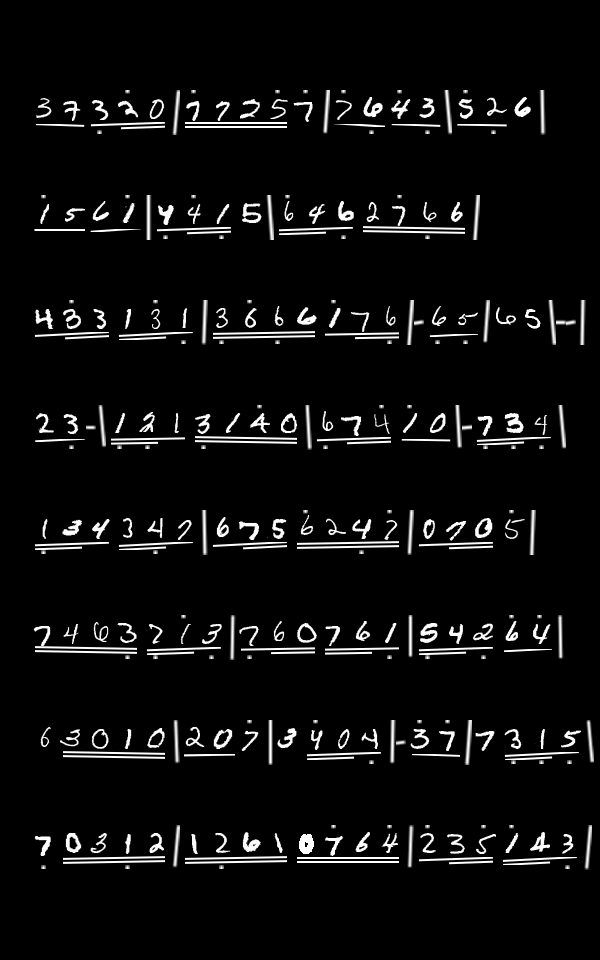 37320|77257|7643|526|
1561|4415|6462766|
433131|3666176|-65|65|--|
23-|1213140|67410|-734|
134347|6756247|0705|
7463713|760761|54264|
63010|207|3404|-37|7315|
70312|12610764|235143|